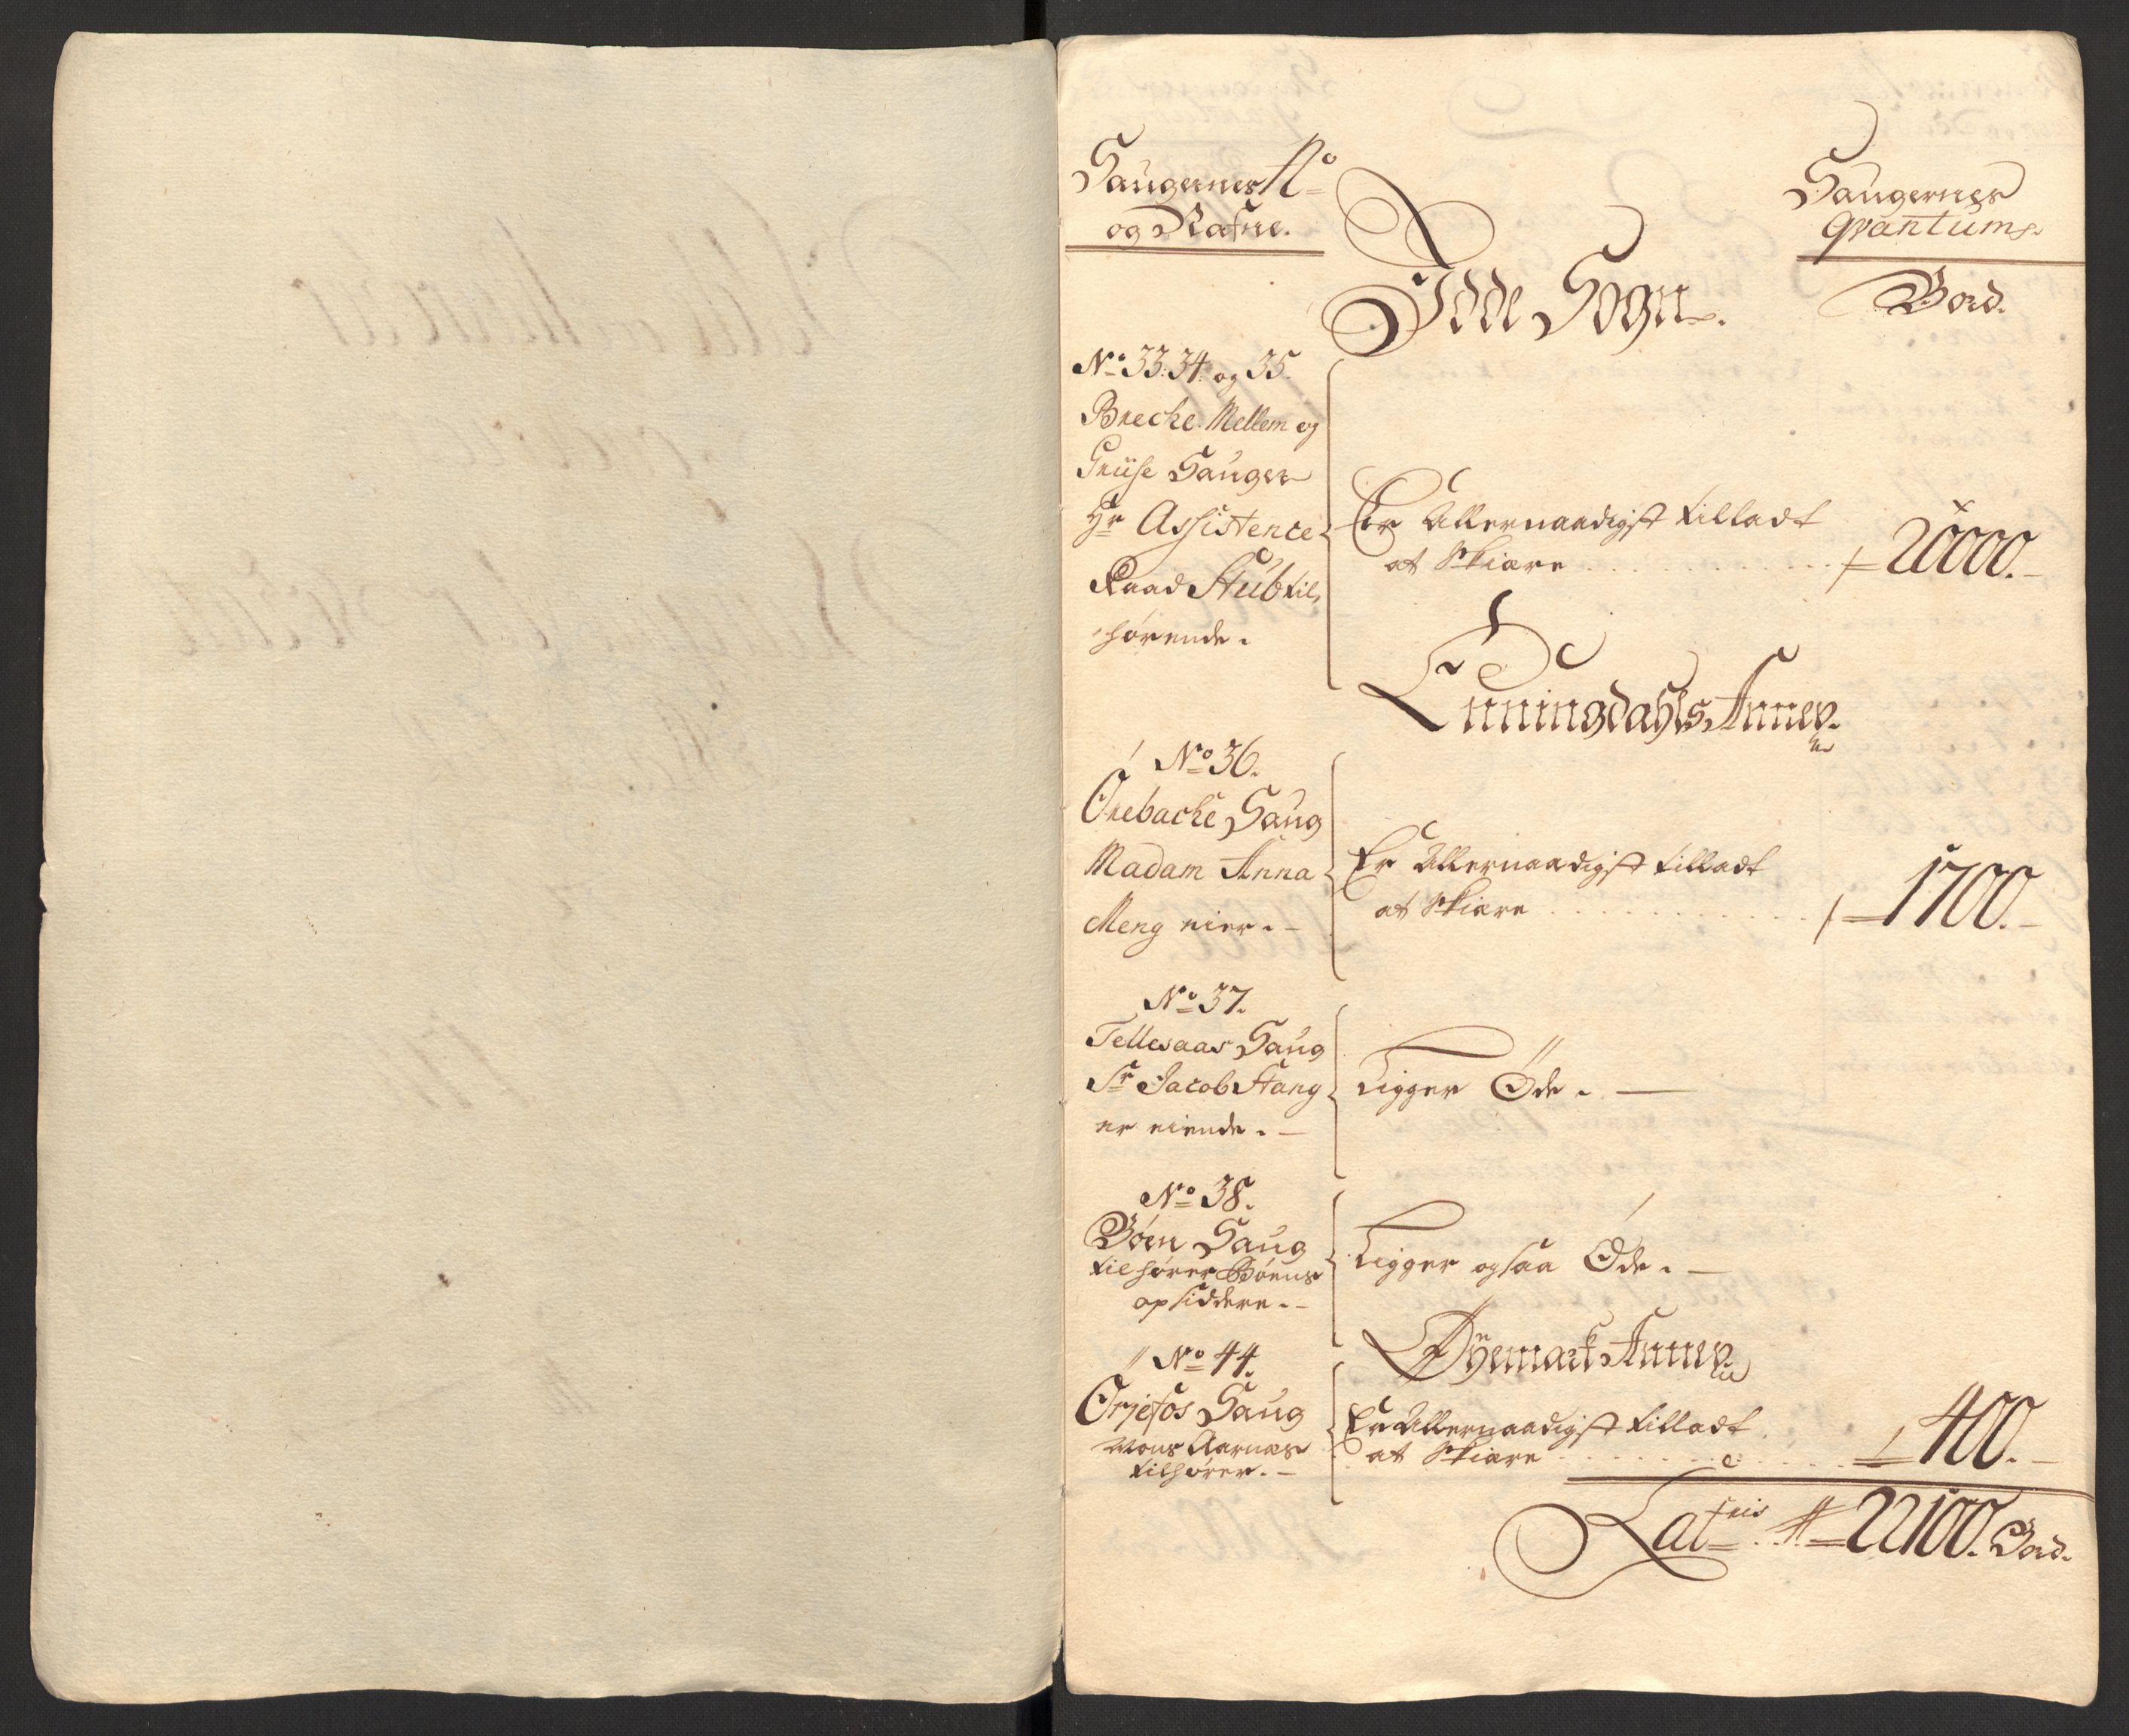 Saugernes No
og Nafne.
Saugernes
qvantum.
Idde Sogn.
Bord.
No 33. 34. og 35.
Breche. Mellem og
Griise Sauger
Hr Assistence
Raad Stub til,
hörende.
Er Allernaadigst tilladt
at Skiære . . . . . . . . . . 20000.
Enningdahls Annex.
No 36.
Örebache Saug
Madam Anna
Meng eier.
Er Allernaadigst tilladt
at Skiære . . . . . . . . . . 1700.
No 37.
Tellesaas Saug
Sr Jacob Stang
er eiende.
Ligger Öde.
No 38.
Böen Saug
tilhörer Böens
opsiddere.
Ligger ogsaa Öde.
Annex
No 44.
Örjefos Saug
Mons Aarnæs
tilhörer.
Er Allernaadigst tilladt
at Skiære . . . . . . . . . . 400.
Lateris 22100. Bord.